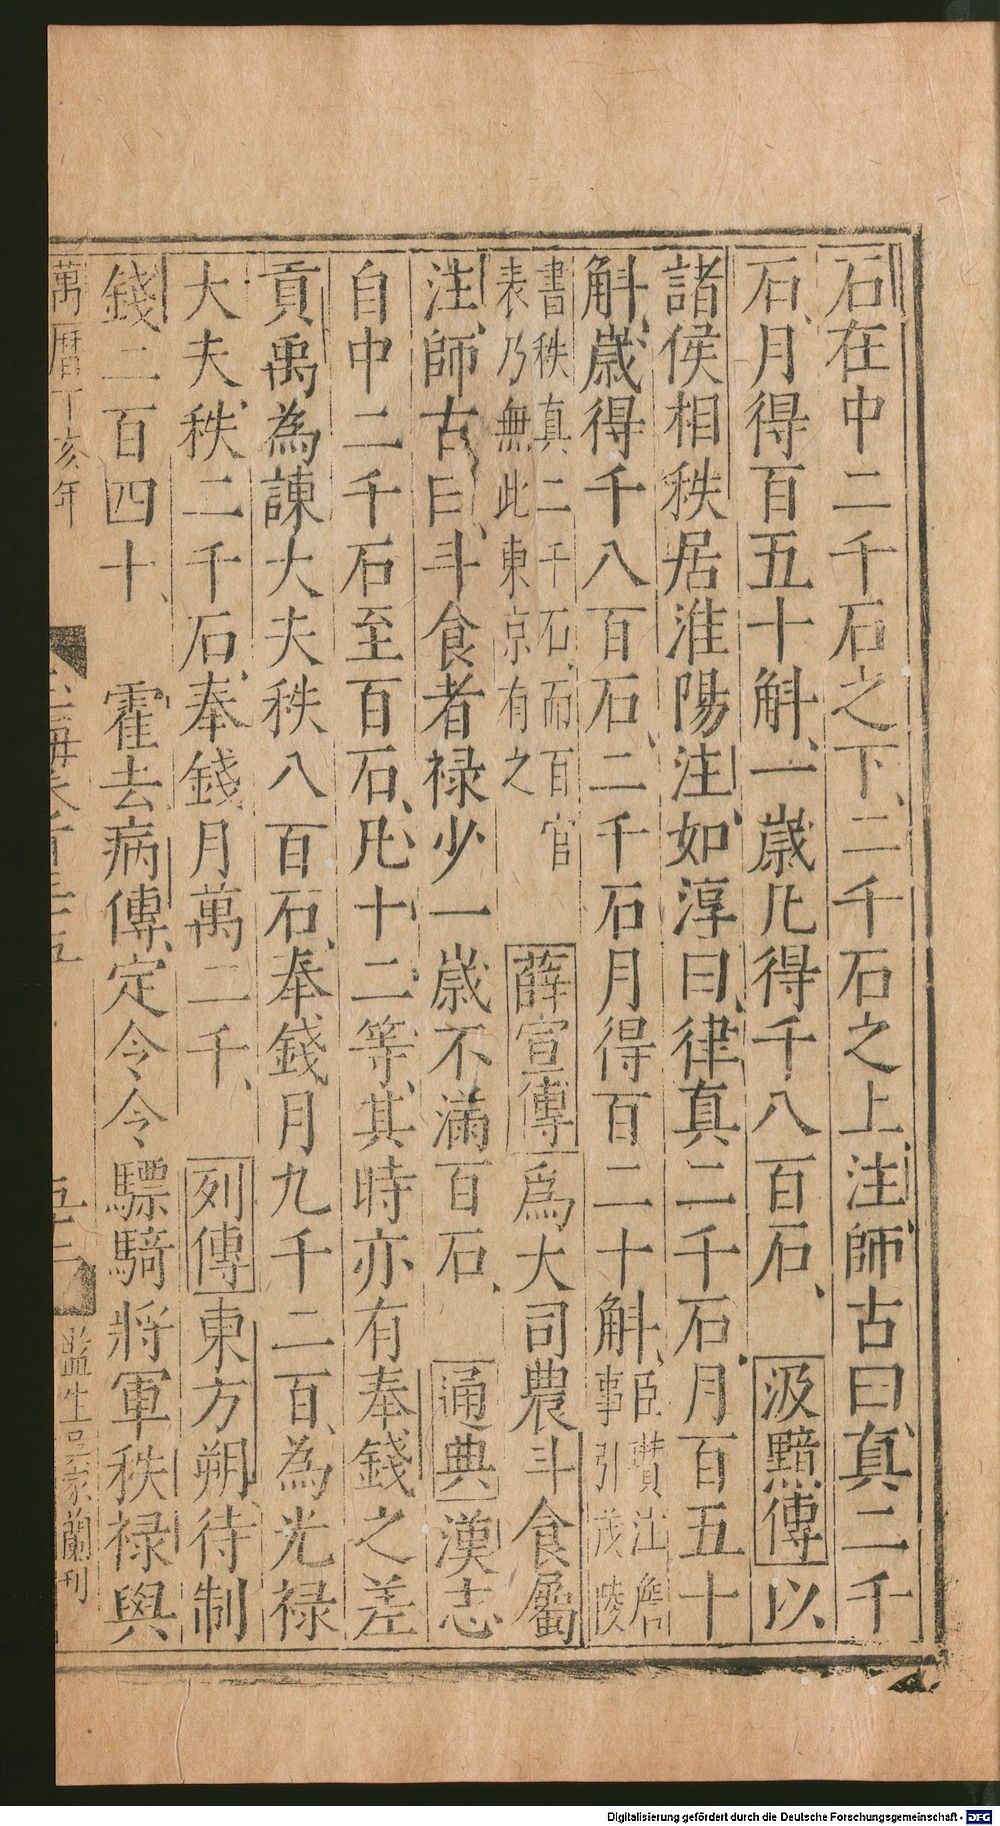 石在中二千石之下、二千石之上、注師古曰、真二千
石、月得百五十斛、一歲凡得千八百石、 汲黯傳以
諸侯相秩居淮陽注、如淳曰、律真二千石、月百五十
斛、歲得千八百石、二千石月得百二十斛、臣瓚江詹事引茂陵
書秩真二千石、而百官表乃無此東京有之 薛宣傳為大司農斗食屬
注、師古曰、斗食者祿少一歲不滿百石、 通典漢志
自中二千石至百石、凡十二等、其時亦有奉錢之差
貢禹為諫大夫秩八百石、奉錢月九千二百、為光祿
大夫、秩二千石、奉錢月萬二千、 列傳東方朔待制
錢二百四十、 霍去病傳、定令令驃騎將軍秩祿與
萬曆丁亥年 監生 家蘭刊
Digitalisierung gefördert durch die Deutsche Forschungsgemeinschaft - DFG